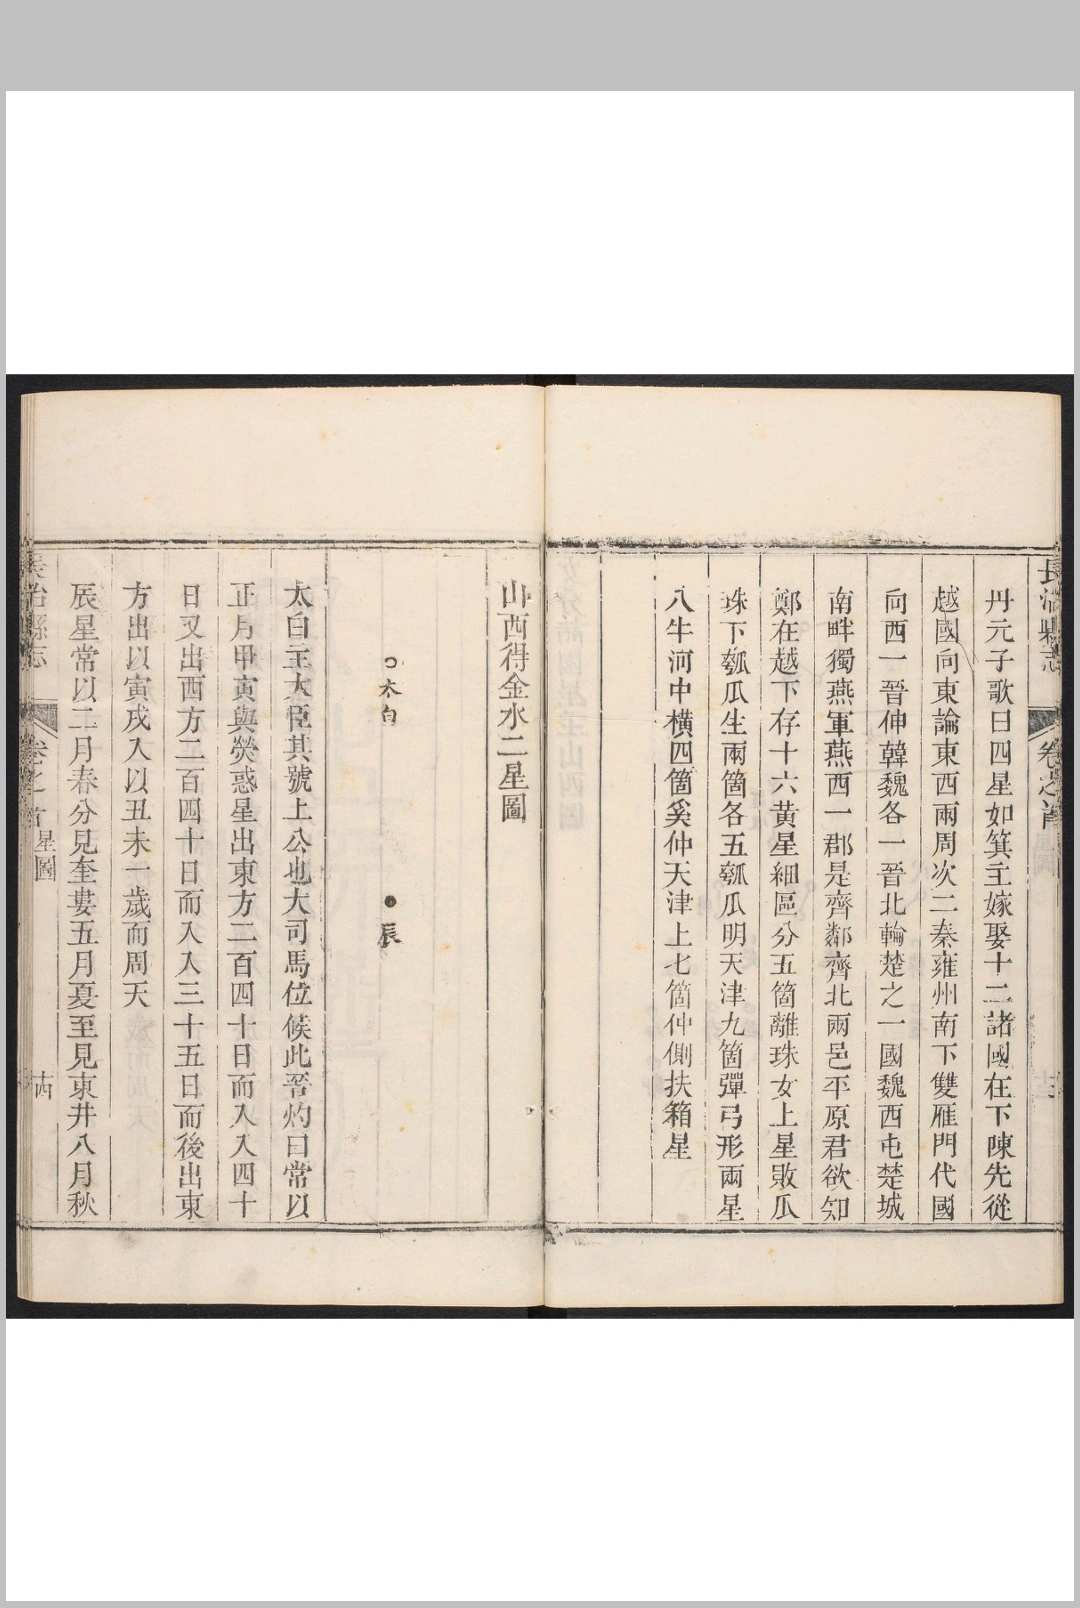 長治縣志
卷之首
丹元子歌曰四星如箕主嫁娶十二諸國在下陳先從
越國向東論東西兩周次二秦雍州南下雙雁門代國
向西一晉伸韓魏各一晉北輪楚之一國魏西屯楚城
南畔獨燕軍燕西一郡是齊鄰齊北兩邑平原君欲知
鄭在越下存十六黃星細區分五箇離珠女上星敗瓜
珠下瓠瓜生兩箇各五瓠瓜明天津九箇彈弓形兩星
八牛河中橫四箇奚仲天津上七箇仲側扶箱星
山西得金水二星圖
太白
辰
太白主大臣其號上公也大司馬位候此晉灼曰常以
正月甲寅與熒惑星出東方二百四十日而入入四十
日又出西方二百四十日而入入三十五日而後出東
方出以寅戌入以丑未一歲而周天
辰星常以二月春分見奎婁五月夏至見東井八月秋
長治縣志
卷之首
星圖